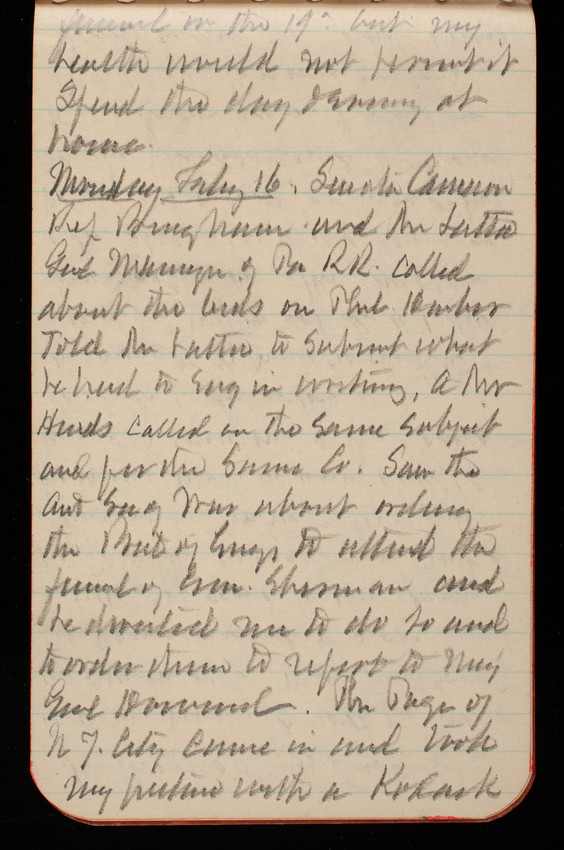 funeral on the 19th but my
health would not permit it
Spend the day drawing at
home.
Monday Feby 16. Senator Cameron
Rep Bingham and Mr Latta
Genl Manager of Pa RR. called
about the bids on Phil Harbor
Told Mr Latta to Submit what
he had to Say in writing, a Mr
Hinds called on the Same Subject
and for the Same Co. Saw the
Act Secy War about ordering
the Bat of Engrs to attend the
funeral of Gen. Sherman and
he directed me to do so and
to order them to report to Maj
Genl Howard. Mr Page of
N Y. City came in and took
my picture with a Kodack